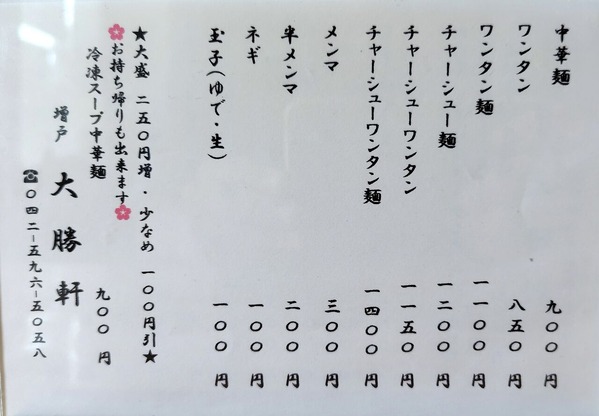 中華麺 九〇〇円
ワンタン 八五〇円
ワンタン麺 一一〇〇円
チャーシュー麺 一二〇〇円
チャーシューワンタン 一一五〇円
チャーシューワンタン麺 一四〇〇円
メンマ 三〇〇円
半メンマ 二〇〇円
ネギ 一〇〇円
玉子(ゆで・生) 一〇〇円
★大盛 二五〇円増・少なめ 一〇〇円引★
お持ち帰りも出来ます
冷凍スープ中華麺 九〇〇円
増戸 大勝軒
☎〇四二－五九六－五〇五八